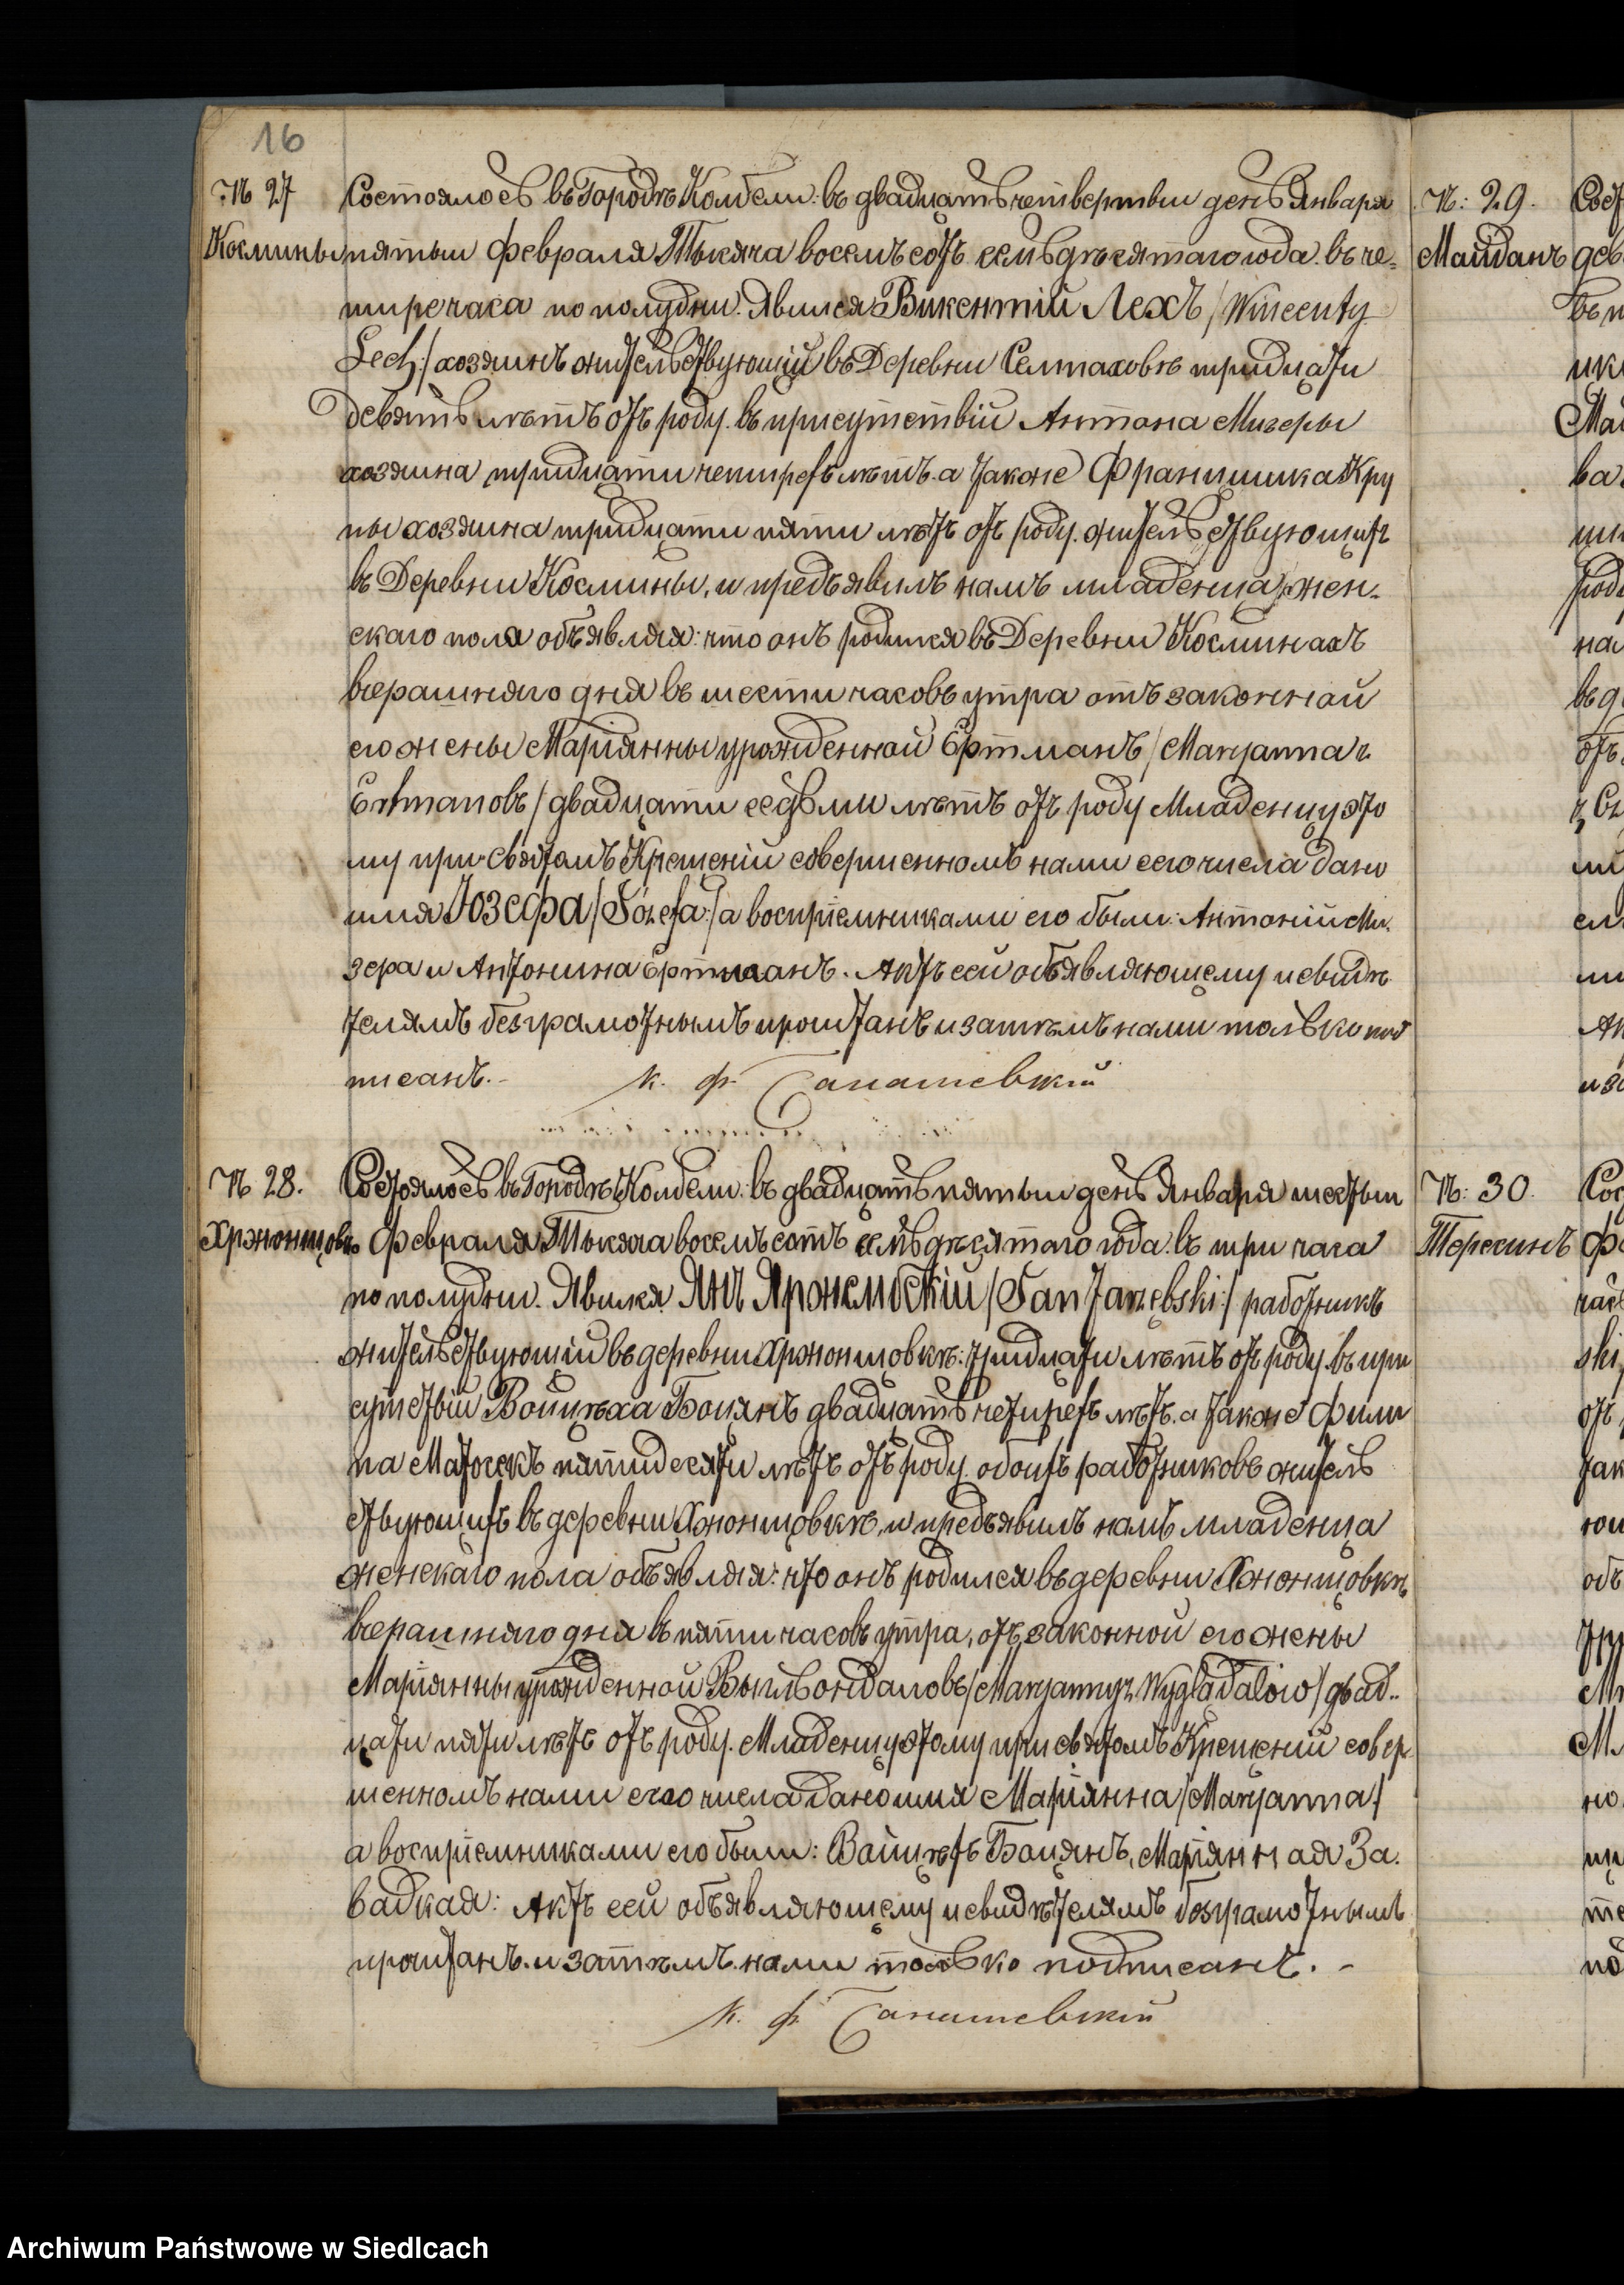 16
№ 27 Состоялось въ Городѣ Колбели: въ двадцать четвертый день Января
Космины пятый Февраля Тысяча восемъ сотъ семьдѣсятаго года. въ че=
тыре часа по полудни. Явился Викентій Лехъ /Wincenty
Lech:/ хозяинъ жительствующій въ Деревни Селтаховѣ тридцати
девять лѣтъ отъ роду. въ присутствіи Антона Мизеры
хозяина тридцати четырехъ лѣтъ. а также Францишка Кру
пы хозяина тридцати пяти лѣтъ отъ роду. жительствующихъ
въ Деревни Космины, и предъявилъ намъ младенца жен-
скаго пола объявляя: что онъ родился въ Деревни Косминахъ
вчерашняго дня въ шести часовъ утра отъ законной
его жены Маріянны урожденной Ертманъ /Maryanna z
Ertmanовъ/ двадцати седьми лѣтъ отъ роду Младенцу это
му при Святомъ Крещеніи совершенномъ нами сего числа дано
имя Іозефа /Józefa:/ а воспріемниками его были: Антоній Ми.
зера и Антонина Ертманъ. Актъ сей объявляющему и свидѣ
телямъ безграмотнымъ прочитанъ и затѣмъ нами только под
писанъ.-
К. Ф.
№ 28. Состоялось въ Городѣ Колбели: въ двадцать пятый день Января шестый
Хржонщовка Февраля Тысяча восемъ сотъ семьдѣсятаго года. въ три часа
по полудни. Явился Янъ Яржембскій /Jan Jarzębski:/ работникъ
жительствующій въ деревни Хржонщовкѣ: тридцати лѣтъ отъ роду. въ при
сутствіи Войцѣха Боцянъ двадцать четырехъ лѣтъ. а также Фили
па Матосекъ пятидесяти лѣтъ отъ роду. обоихъ работниковъ житель
ствующихъ въ деревни Хжонщовкѣ, и предъявилъ намъ младенца
женскаго пола объявляя: что онъ родился въ деревни Хжонщовкѣ
вчерашняго дня въ пяти часовъ утра, отъ законной его жены
Маріянны урожденной Выгльондаловъ /Maryanny z Wyglądałow/ двад..
цати пяти лѣтъ отъ роду. Младенцу этому при святомъ Крещеніи совер
шенномъ нами сего числа дано имя Маріянна /Maryanna/
а воспріемниками его были: Войцѣхъ Боцянъ, Маріянна За.
вадкая: Актъ сей объявляющему и свидѣтелямъ безграмотнымъ
прочитанъ. и затѣмъ. нами только подписанъ. -
К. Ф.
№: 29.
Майданъ
№: 30.
Тересинъ
Archiwum Państwowe w Siedlcach